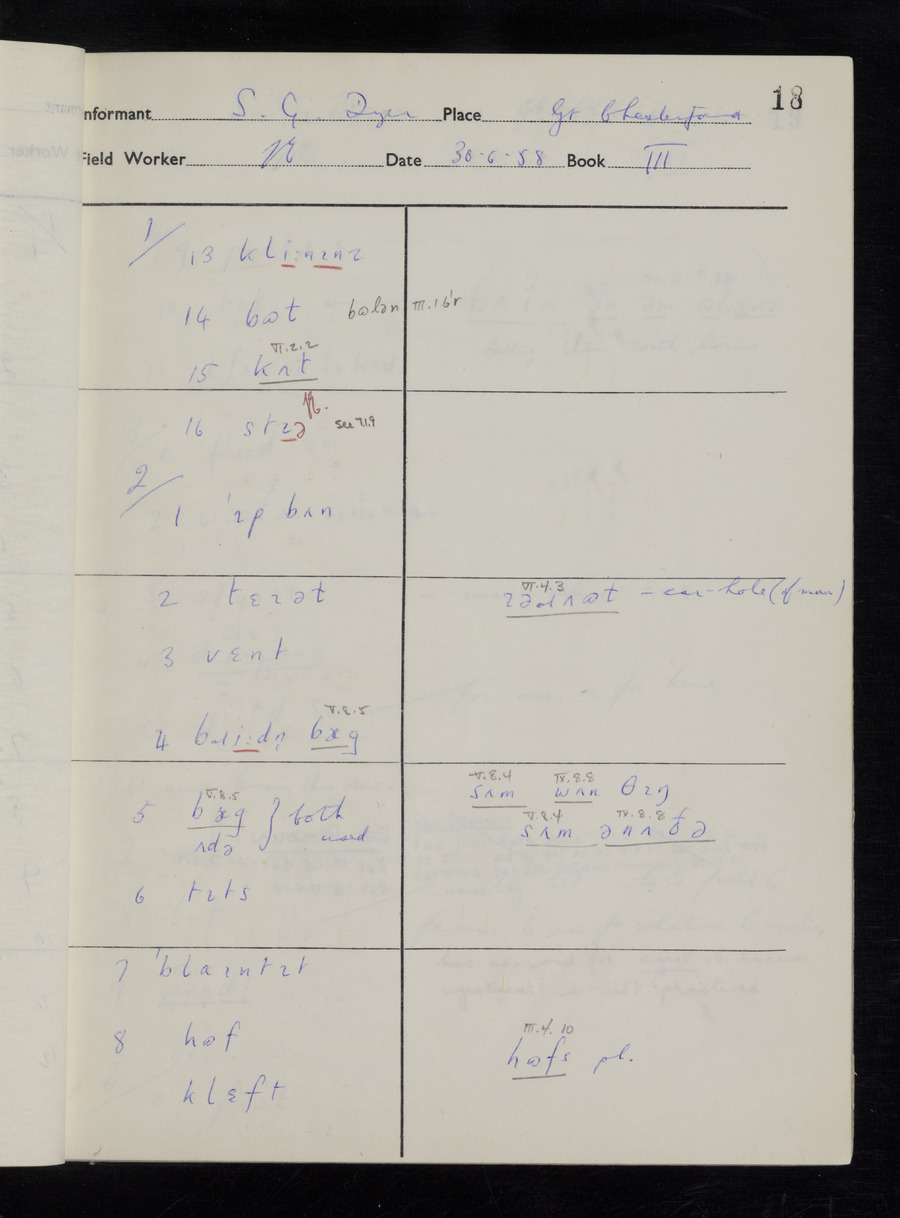 18
nformant S. G. Dyer Place Gt Chesterford
Field Worker Date 30-6-58 Book III
1/ 13 kli:nɪnz
14 bɷt bɷlən III.1 6'r
VI.2.2
15 kʌt
16 stɪə see 7.1.9
2/
1 'ɪp bʌn
VI.4.3
2 tɛɪət – ear-hole (of man)
3 vɛnt
V.8.5
4 bɹi:dn̩ bæg
V.8.4 IX.8.8
sʌm wʌn θɪŋ
V.8.5
5 bæg } both
V.8.4 IX.8.8
sʌm ənʌðə
ʌdə used
6 tɪts
7 'blaɪntɪt
8 hɷf
III.4.10
hɷfs pl.
klɛft